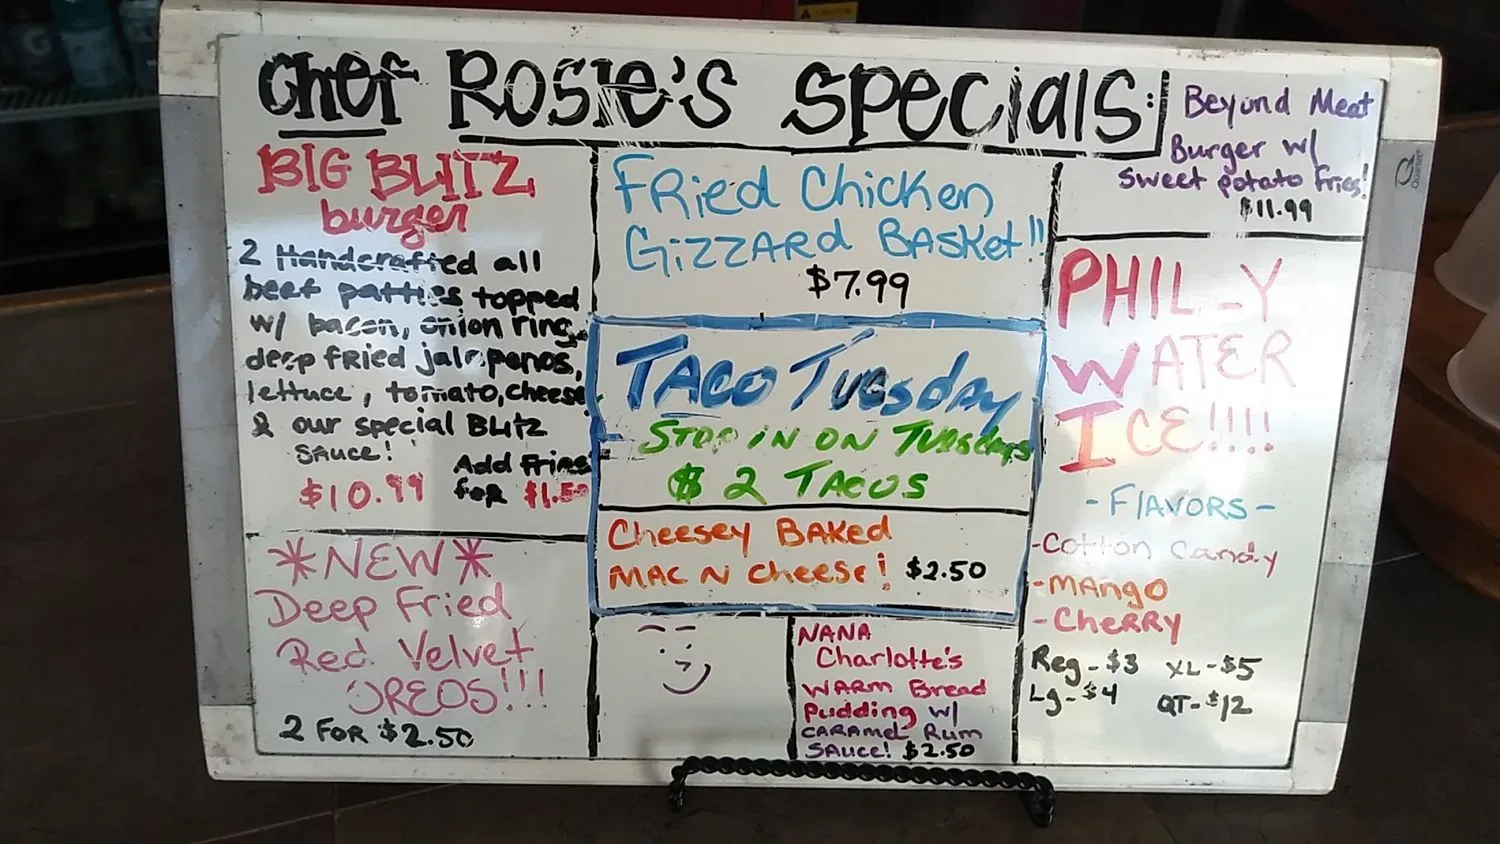 Chef Rosie's Specials:
BIG BLITZ
burger
2 Handcrafted all
beef patties topped
w/ bacon, onion ring,
deep fried jalapenos,
lettuce, tomato, cheese
& our special Blitz
Sauce!
$10.99
Add Fries
for $1.50
*NEW*
Deep Fried
Red Velvet
OREOS!!!
2 FOR $2.50
Fried Chicken
Gizzard Basket!!
$7.99
Taco Tuesday
Stop in on Tuesdays
$2 Tacos
Cheesey Baked
Mac n cheese! $2.50
Nana
Charlotte's
Warm Bread
Pudding w/
Caramel Rum
Sauce! $2.50
Beyond Meat
Burger w/
sweet potato fries!
$11.99
PHIL-Y
WATER
ICE!!!!
-Flavors-
-Cotton Candy
-Mango
-Cherry
Reg-$3 XL-$5
Lg-$4 QT-$12
Quartet